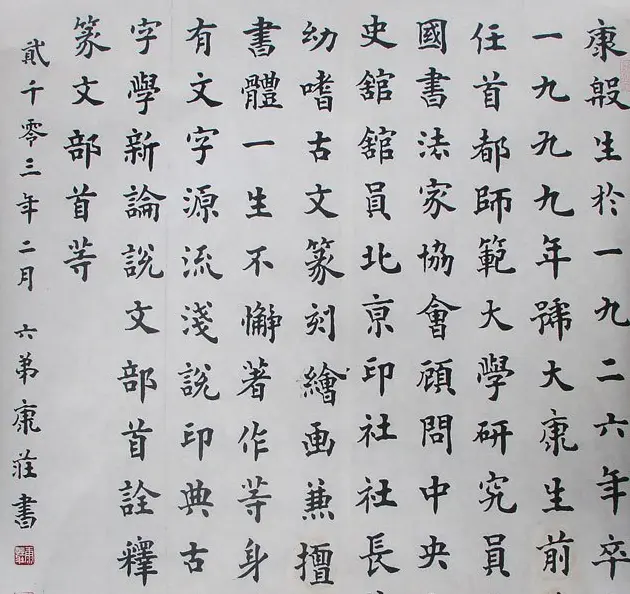 康殷生於一九二六年卒
一九九九年號大康生前
任首都師範大學研究員
國書法家協會顧問中央
史舘舘員北亰印社社長
幼嗜古文篆刻繪画兼擅
書體一生不懈著作等身
有文字源流淺說印典古
字學新論說文部首詮釋
篆文部首等
貳千零三年二月 六弟康莊書